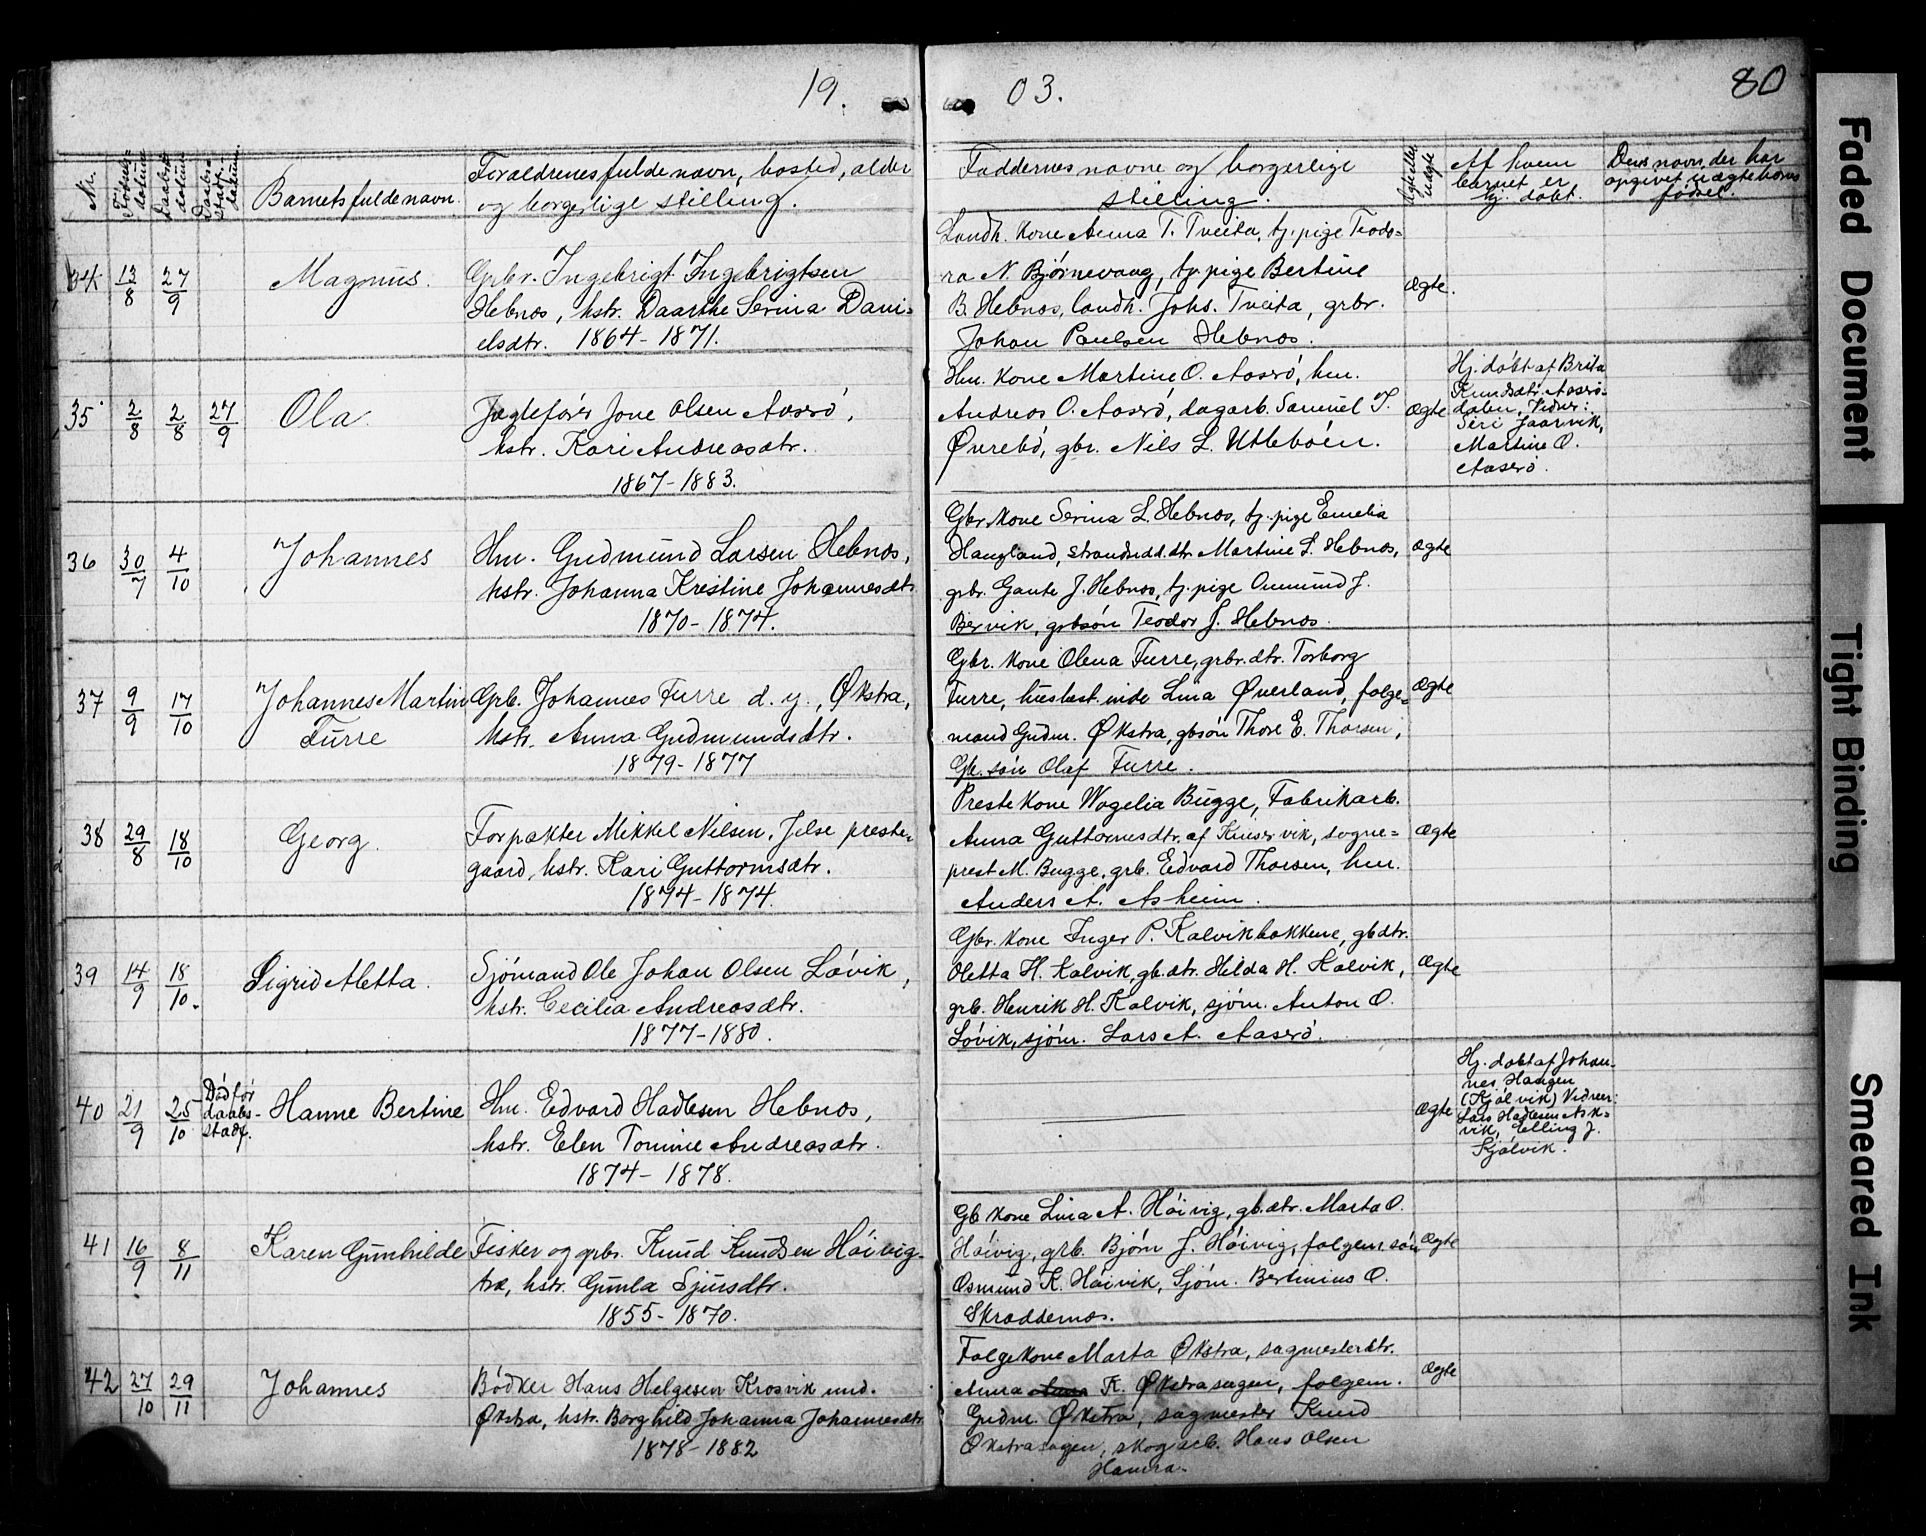 19. 03. 80
Nr.
Fødsels-
datum
Daabs-
datum
Daabs-
stadf.
datum.
Barnets fulde navn.
Forældrenes fulde navn, bosted, alder
og borgerlige stilling.
Faddernes navne og borgerlige
stilling.
Ægte eller
uægte
Af hvem
barnet er
hj. døbt.
Dens navn, der har
opgivet uægte barns
fødsel.
34 13/8 27/9 Magnus.
Grbr. Ingebrigt Ingebrigtsen
Hebnes, hstr. Daarthe Serina Dani-
elsdtr. 1864-1871.
Landh. kone Anna T. Tveita, tj. pige Teodo-
ra N. Bjørnevaag, tj. pige Bertine
B. Hebnes, landh. Johs. Tveita, grbr.
Johan Paulsen Hebnes.
Ægte.
35 2/8 2/8 27/9 Ola.
Jægtefører Jone Olsen Aaserø,
hstr. Kari Andreasdtr.
1867-1883.
Hm. kone Martine O. Aaserø, hm.
Andreas O. Aaserø, dagarb. Samuel T.
Øvrebø, gbr. Nils L. Utlebøen.
Ægte
Hj. døbt af Brita
Knudsdtr. Aaserø-
dalen, Vidner:
Siri Jaarvik,
Martine O.
Aaserø.
36 30/7 4/10 Johannes
Hm. Gudmund Larsen Hebnes,
hstr. Johanna Kristine Johannesdtr.
1870-1874.
Gbr. kone Serina L. Hebnes, tj. pige Emelia
Haugland, strandsidd.dtr. Martine S. Hebnes,
grbr. Gaute J. Hebnes, tj. pige Ommund J.
Bervik, grbsøn Teodor J. Hebnes.
Ægte
37 9/9 17/10 Johannes Martin
Furre
Grb. Johannes Furre d. y., Økstra,
hstr. Anna Gudmundsdtr.
1879-1877
Gbr. kone Olena Furre, grbr. dtr. Torborg
Furre, husbest.inde Lina Øverland, folge-
mand Gudm. Økstra, gbsøn Thore E. Thorsen,
Gb. søn Olaf Furre.
Ægte
38 29/8 18/10 Georg.
Forpakter Mikkel Nilsen, Jelse preste-
gaard, hstr. Kari Guttormsdtr.
1874-1874.
Prestekone Vogelia Bugge, Fabrikarb.
Anna Guttormsdtr. af Kinservik, sogne-
prest M. Bugge, grb. Edvard Thorsen, hm.
Anders A. Asheim.
Ægte
39 14/9 18/10. Sigrid Aletta.
Sjømand Ole Johan Olsen Løvik,
hstr. Cecilia Andreasdtr.
1877-1880.
Gbr. kone Inger P. Kalvikbakkene, gbdtr.
Oletta H. Kalvik, gb.dtr. Hilda H. Kalvik,
grb. Henrik H. Kalvik, sjøm. Anton O.
Løvik, sjøm. Lars A. Aaserø.
Ægte
40 21/9 25/10 Død før
daabs-
stadf.
Hanne Bertine
Hm. Edvard Hadlesen Hebnes,
hstr. Elen Tomine Andreasdtr.
1874-1878.
Ægte
Hj. døbt af Johan-
nes Haugen
(Kjølvik) Vidner:
Lars Hadlesen Ask-
vik, Elling J.
Kjølvik.
41 16/9 8/11 Karen Gunhilde
Fisker og grbr. Knud Knudsen Høivig-
træ, hstr. Gunla Sjursdtr.
1855-1870.
Gb kone Lina A. Høivig, gb.dtr. Marta O.
Høivig, grb. Bjørn J. Høivig, folgem. søn
Osmund K. Høivik, Sjøm. Bertinius O.
Skraddernes.
Ægte
42 27/10 29/11 Johannes
Bødker Hans Helgesen Krosvik und.
Økstra, hstr. Borghild Johanna Johannesdtr.
1878-1882
Folgekone Marta Økstra, sagmesterdtr.
Anna K. Økstrasagen, folgem.
Gudm. Økstra, sagmester Knud
Økstrasagen, skogarb. Hans Olsen
Hamra.
Ægte
Faded Document
Tight Binding
Smeared Ink